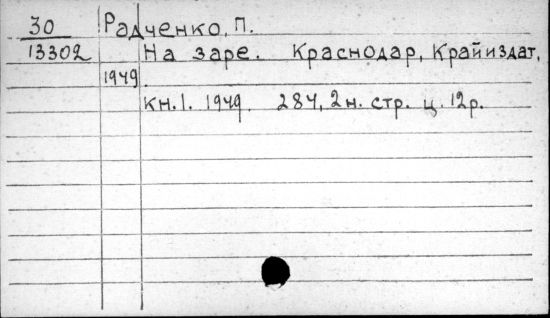 30 Радченко, П.
13302 На заре. Краснодар, Крайиздат,
1949.
Кн. 1. 1949. 284, 2 н. стр. ц. 12р.